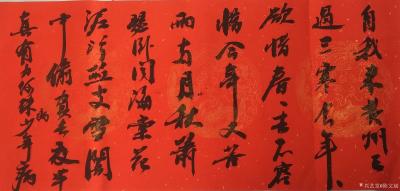 自我来黄州已
过三寒食年年
欲惜春春去不容
惜今年又苦
雨两月秋萧
瑟卧闻海棠花
泥污燕支雪闇
中偷负去夜半
真有力何殊少年病